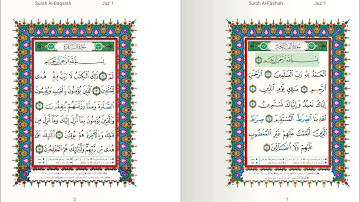 Surah Al-Fātihah Juz' 1
سُورَةُ الْفَاتِحَةِ
بِسْمِ ٱللَّهِ ٱلرَّحْمَٰنِ ٱلرَّحِيمِ ١
ٱلْحَمْدُ لِلَّهِ رَبِّ ٱلْعَٰلَمِينَ ٢ ٱلرَّحْمَٰنِ
ٱلرَّحِيمِ ٣ مَٰلِكِ يَوْمِ ٱلدِّينِ ٤
إِيَّاكَ نَعْبُدُ وَإِيَّاكَ نَسْتَعِينُ ٥
ٱهْدِنَا ٱلصِّرَٰطَ ٱلْمُسْتَقِيمَ ٦ صِرَٰطَ
ٱلَّذِينَ أَنْعَمْتَ عَلَيْهِمْ غَيْرِ ٱلْمَغْضُوبِ
عَلَيْهِمْ وَلَا ٱلضَّآلِّينَ ٧
1
Surah Al-Baqarah Juz' 1
سُورَةُ الْبَقَرَةِ
بِسْمِ ٱللَّهِ ٱلرَّحْمَٰنِ ٱلرَّحِيمِ
الٓمٓ ١ ذَٰلِكَ ٱلْكِتَٰبُ لَا رَيْبَ فِيهِ هُدًى
لِّلْمُتَّقِينَ ٢ ٱلَّذِينَ يُؤْمِنُونَ بِٱلْغَيْبِ وَيُقِيمُونَ
ٱلصَّلَوٰةَ وَمِمَّا رَزَقْنَٰهُمْ يُنفِقُونَ ٣
وَٱلَّذِينَ يُؤْمِنُونَ بِمَآ أُنزِلَ إِلَيْكَ وَمَآ أُنزِلَ مِن
قَبْلِكَ وَبِٱلْءَاخِرَةِ هُمْ يُوقِنُونَ ٤ أُو۟لَٰٓئِكَ عَلَىٰ
هُدًى مِّن رَّبِّهِمْ وَأُو۟لَٰٓئِكَ هُمُ ٱلْمُفْلِحُونَ ٥
2